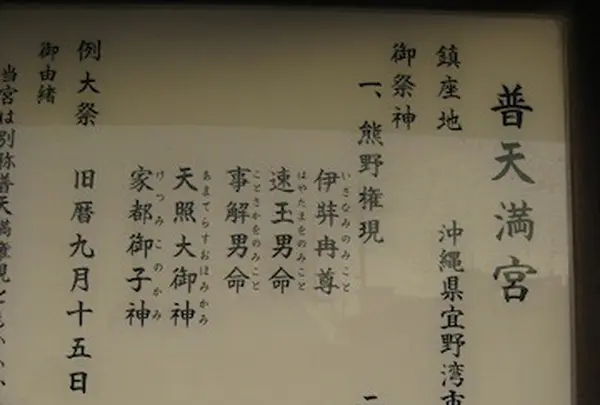 普天満宮
鎮座地 沖縄県宜野湾市
御祭神
一、熊野権現
伊弉冉尊
いざなみのみこと
速玉男命
はやたまをのみこと
事解男命
ことさかをのみこと
天照大御神
あまてらすおほみかみ
家都御子神
けつみこのかみ
例大祭 旧暦九月十五日
御由緒
当宮は別称普天満権現とも